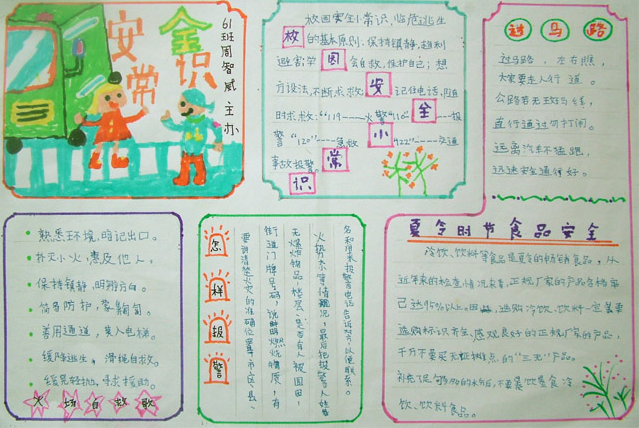 安全
常识
61班周智威 主办
放因安全小常识，临危逃生
放的基本原则，保持镇静，趋利
避害，学园会自救，保护自己；想
方设法，不断求救；安记住电话，随
时求救："119"——火警"110"全——报
警"120"——急救 小"122"——交通
事故报警。常
识
过马路
过马路，左右瞧，
大家要走人行道。
公路若无斑马线，
直行通过勿打闹。
远离汽车不追跑，
迅速安全通行好。
熟悉环境，暗记出口。
扑灭小火，惠及他人，
保持镇静，明辨方向。
简易防护，蒙鼻匍匐。
善用通道，莫入电梯。
缓降逃生，滑绳自救。
缓晃轻抛，寻求援助。
火场自救歌
怎样报警
要讲清楚起火的准确位置等市、区、县、
街道门牌号码，说明燃烧物质，有
无爆燃物品，楼层，是否有人被困困，
火势大小等情况，最后把报警人姓
名和用来报警电话告诉对方，以便联系。
夏令时节食品安全
冷饮、饮料等食品是夏令的畅销食品，从
近年来的检查情况来看，正规厂家的产品合格率
已达95%以上，选购冷饮、饮料一定要
选购标识齐全，感观良好的正规厂家的产品，
千万不要买无证摊点的"三无"产品。
补充足够的水份，不要暴饮暴食冷
饮、饮料食品。